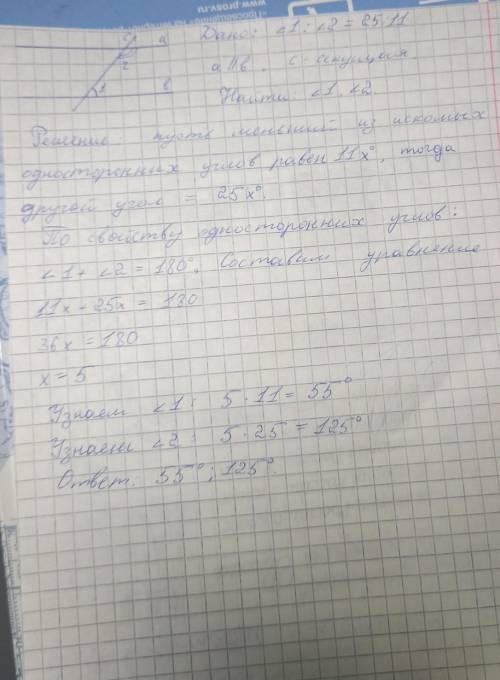 www.prosv.ru
с a
2
1 в
Дано: <1 : <2 = 25:11
a||в, с - секущая
Найти: <1, <2
Решение: пусть меньший из искомых
односторонних углов равен 11x°, тогда
другой угол = 25x°.
По свойству односторонних углов:
<1 + <2 = 180°. Составим уравнение
11x - 25x = 180
36x = 180
x = 5
Узнаем <1: 5 · 11 = 55°
Узнаем <2: 5 · 25 = 125°
Ответ: 55°; 125°.